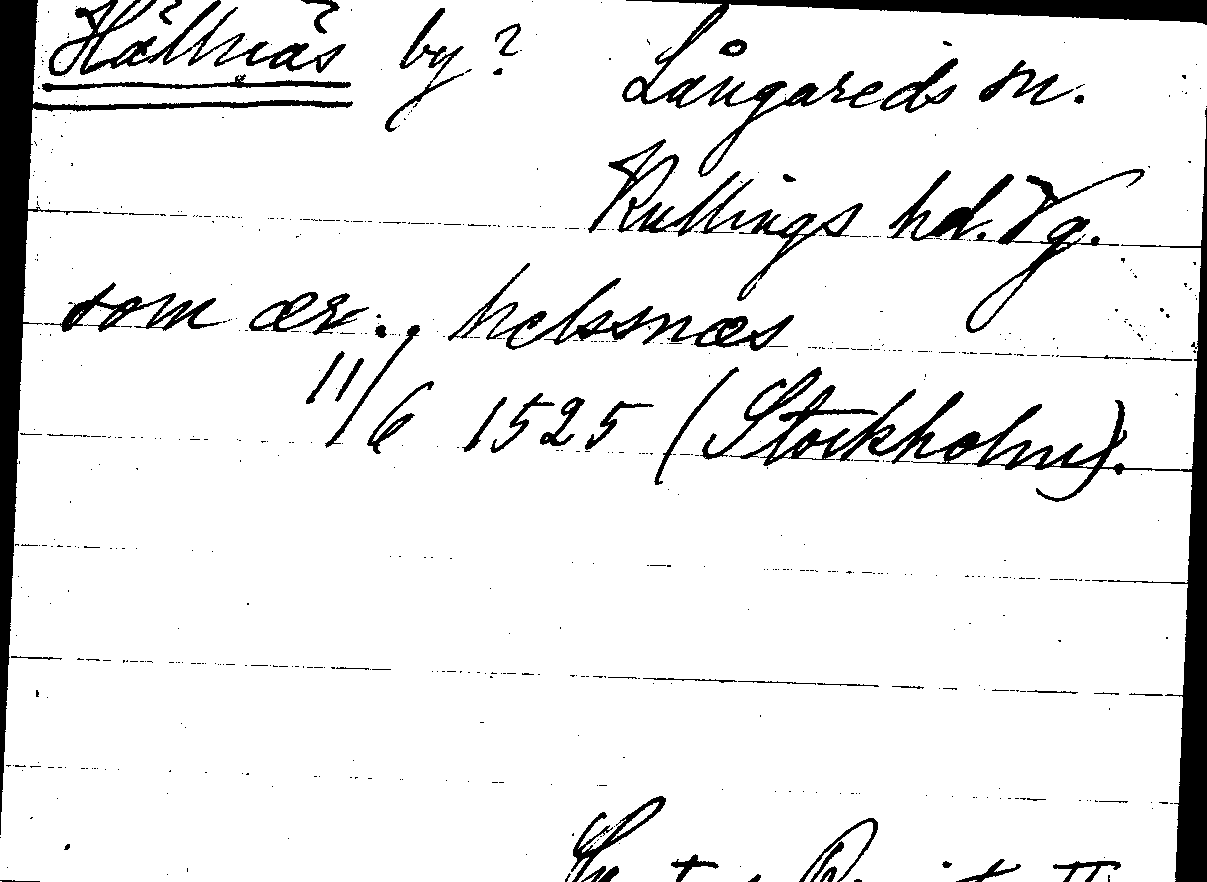 Hällnäs by? Långareds sn.
Kullings hd. Vg.
som ær.. helssnæs
11/6 1525 (Stockholm).